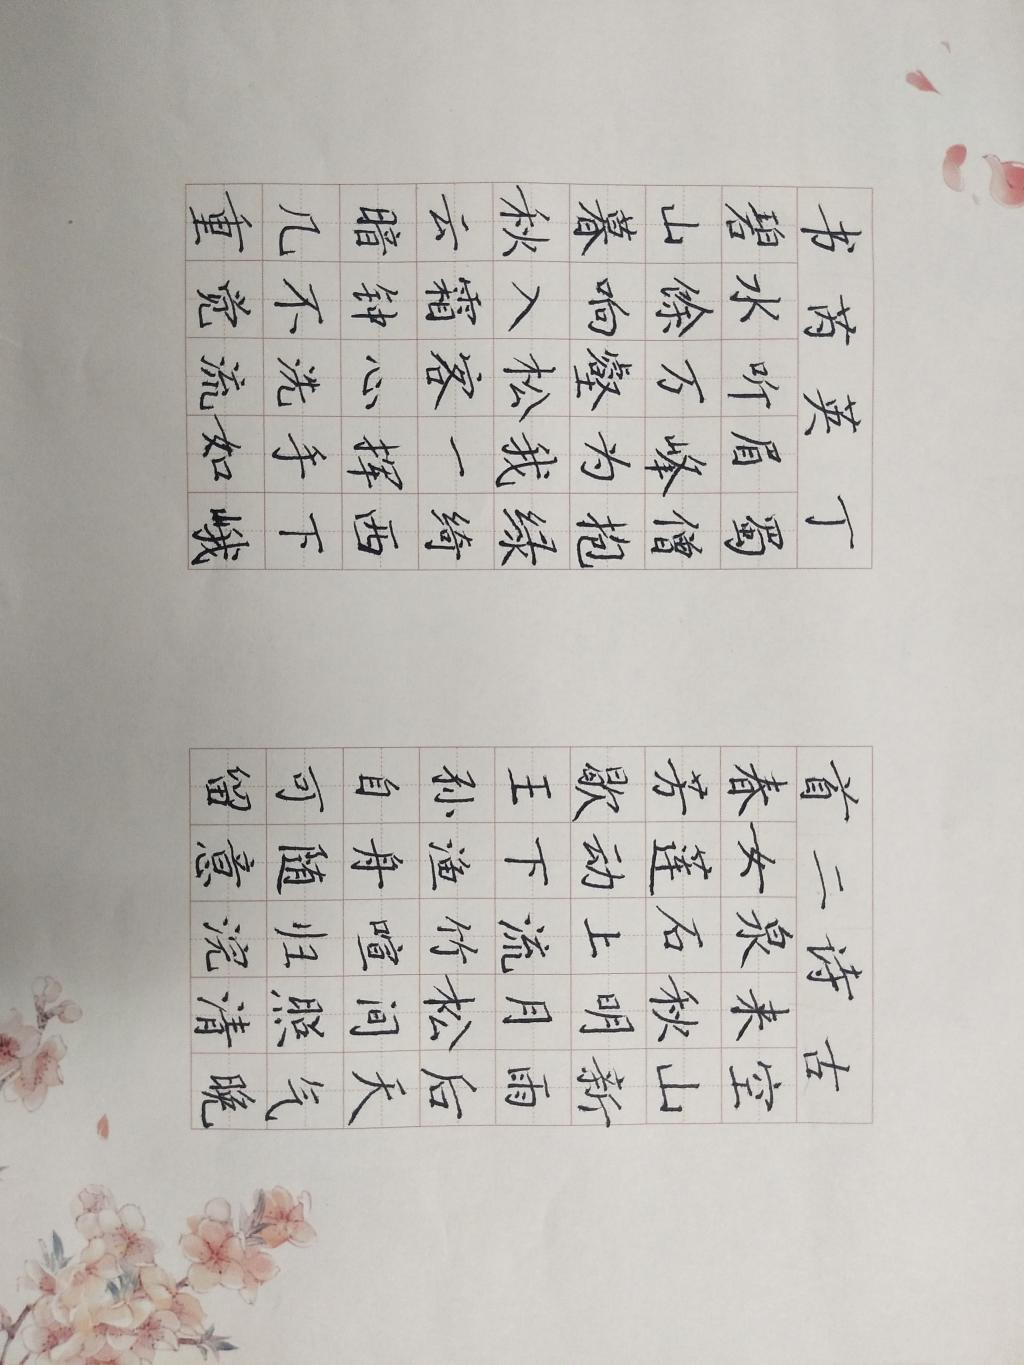 古诗二首
空山新雨后天气晚
来秋明月松间照清
泉石上流竹喧归浣
女莲动下渔舟随意
春芳歇王孙自可留
丁英芮书
蜀僧抱绿绮西下峨
眉峰为我一挥手如
听万壑松客心洗流
水馀响入霜钟不觉
碧山暮秋云暗几重